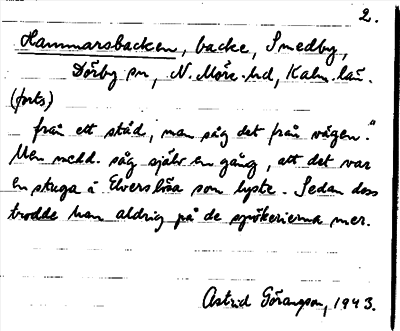 2.
Hammarsbacken, backe, Smedby,
Dörby sn, N. Möre hd, Kalm. län.
(forts)
från ett städ, man såg det från vägen."
Men medd. såg själv en gång, att det var
en stuga i Elverslösa som lyste. Sedan dess
trodde han aldrig på de spökerierna mer.
Astrid Göransson, 1943.